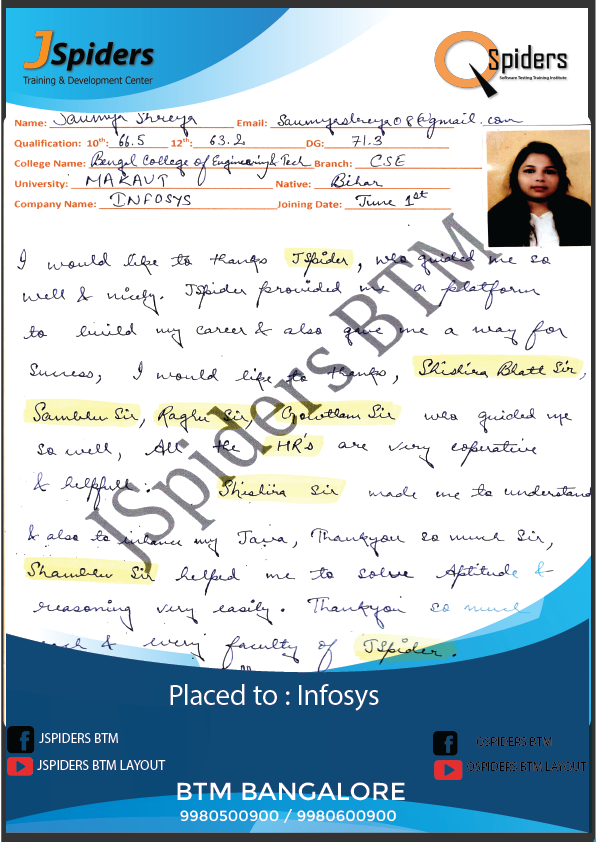 JSpiders
Training & Development Center
QSpiders
Software Testing Training Institute
Name: Saumya Shreya Email: Saumyashreya08@gmail.com
Qualification: 10th: 66.5 12th: 63.2 DG: 71.3
College Name: Bengal College of Engineering & Tech Branch: CSE
University: MAKAUT Native: Bihar
Company Name: INFOSYS Joining Date: June 1st
I would like to thanks JSpider, who guided me so
well & nicely. JSpider provided me a platform
to build my career & also gave me a way for
Success, I would like to thanks, Shishira Bhatt Sir,
Sambhu Sir, Raghu Sir, Gowtham Sir who guided me
so well, All the HR's are very coperative
& helpfull. Shishira Sir made me to understand
& also to inhance my Java, Thankyou so much Sir,
Shambhu Sir helped me to solve Aptitude &
reasoning very easily. Thankyou so much
each & every faculty of JSpider.
JSpiders BTM
Placed to : Infosys
JSPIDERS BTM
QSPIDERS BTM
JSPIDERS BTM LAYOUT
QSPIDERS BTM LAYOUT
BTM BANGALORE
9980500900 / 9980600900